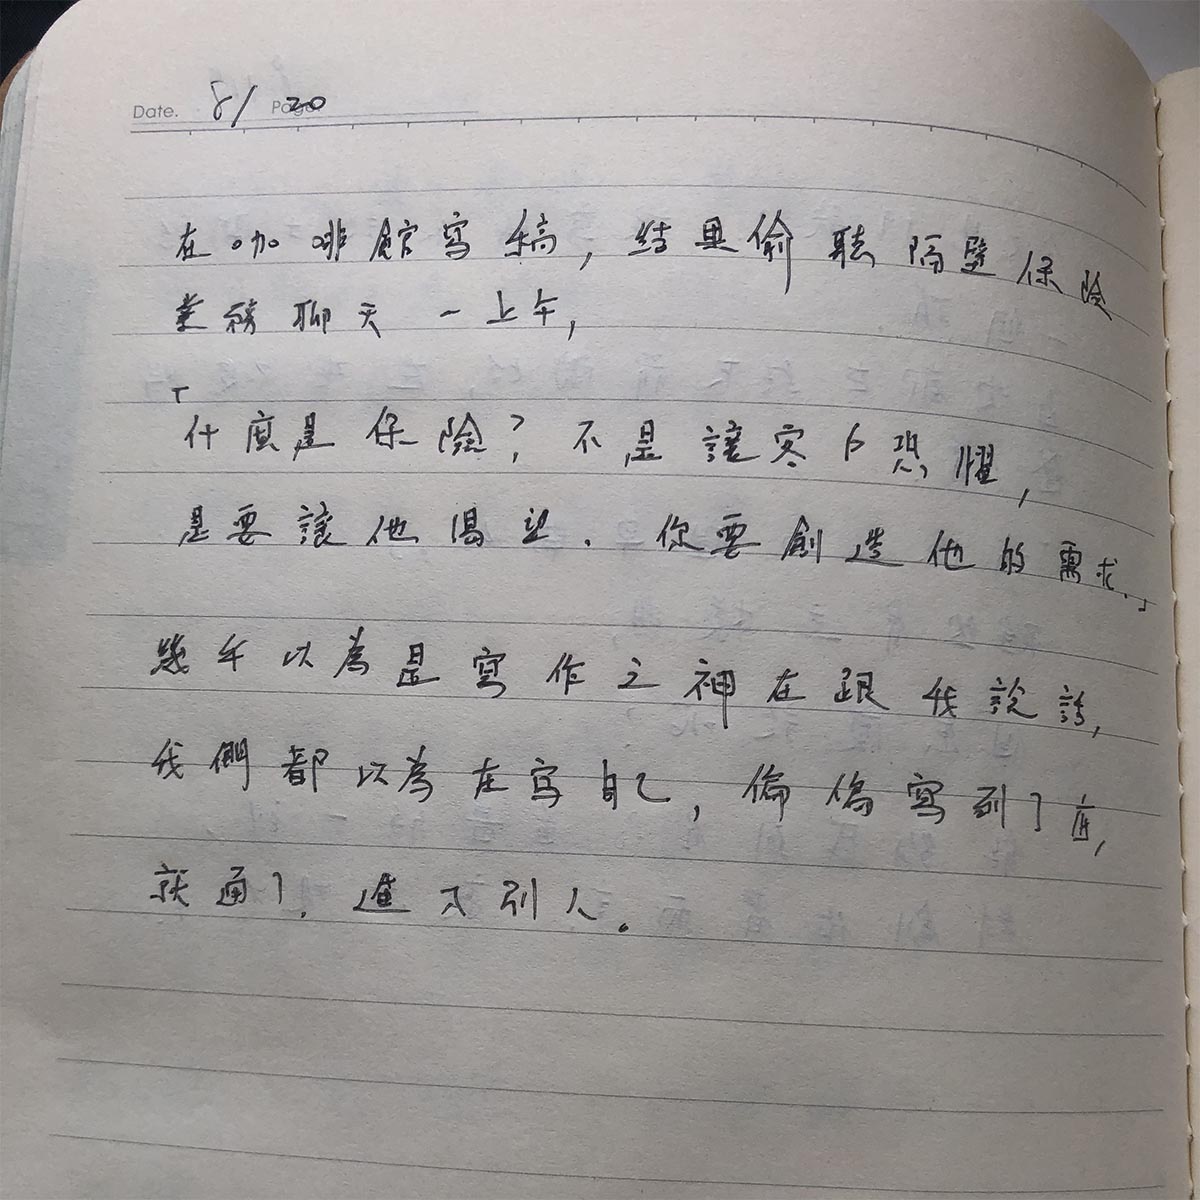 Date. 8/20 Page.
在咖啡館寫稿，結果偷聽隔壁保險
業務聊天一上午，
「什麼是保險？不是讓客戶恐懼，
是要讓他渴望．你要創造他的需求.」
幾乎以為是寫作之神在跟我說話，
我們都以為在寫自己，偷偷寫到了底，
就通了．進入別人。